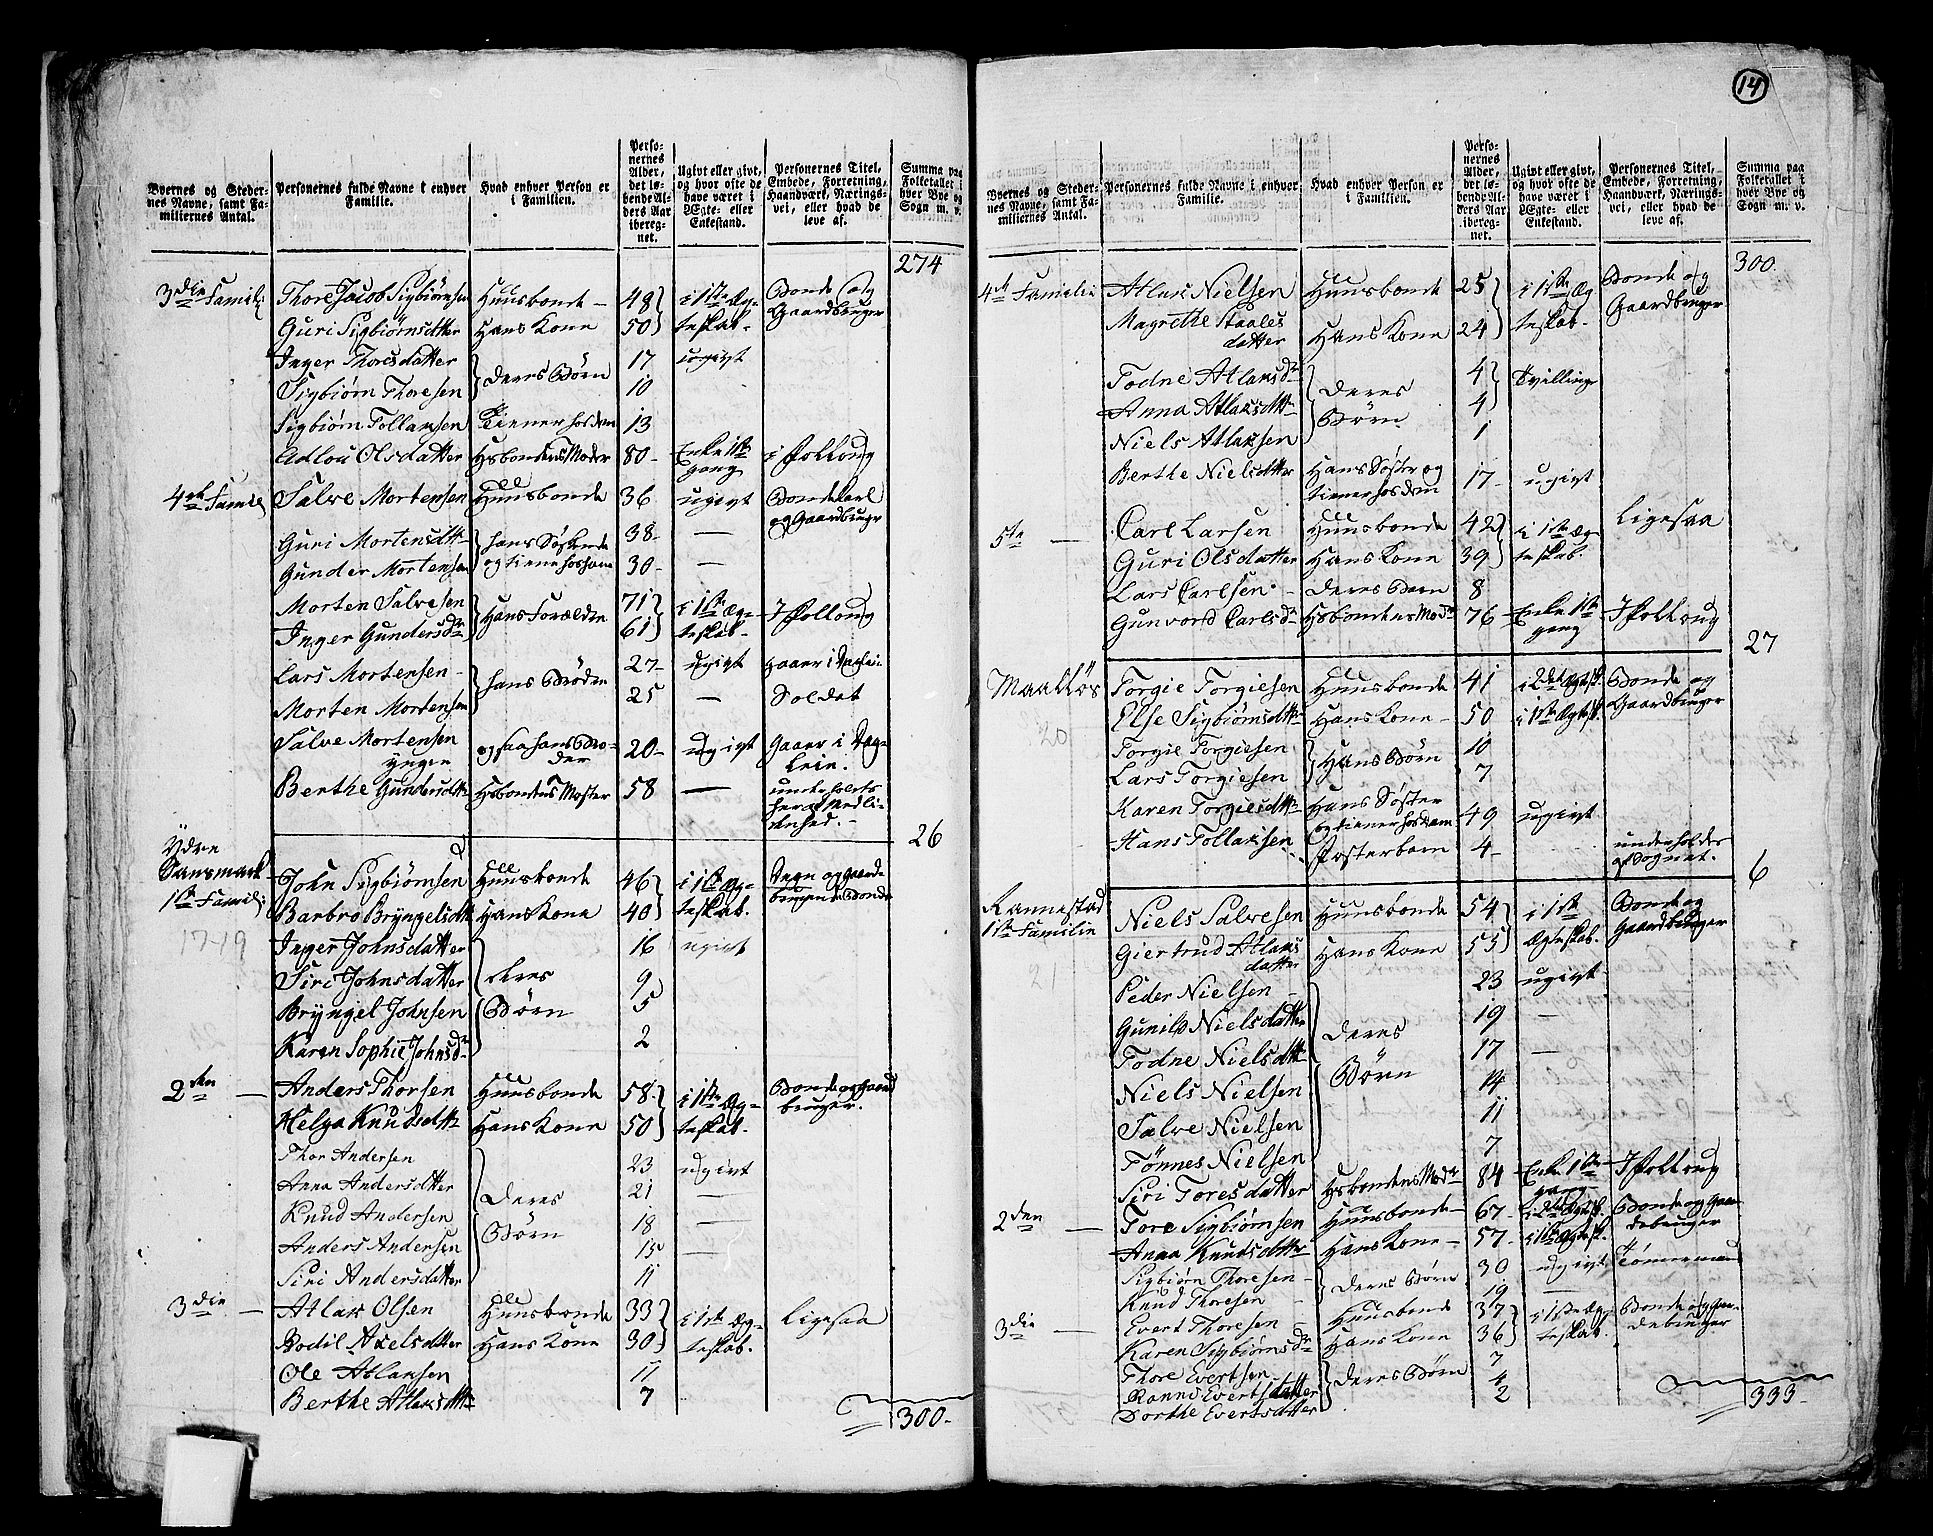 14
Byernes og Stedernes Navne, samt Familiernes Antal.
Personernes fulde Navne i enhver Familie.
Hvad enhver Person er i Familien.
Personernes Alder, det løbende Alders Aar iberegnet.
Ugivt eller givt, og hvor ofte de have været i Ægte- eller Enkestand.
Personernes Titel, Embede, Forretning, Haandværk, Næringsvei, eller hvad de leve af.
Summa paa Folketallet i hver Bye og Sogn m. v.
274
3die Famili: Thore Jacob Sigbiørnsen Huusbonde 48 i 1ste Æg- Bonde og
Guri Sigbiørnsdatter Hans Kone 50 teskab. Gaardbruger
Inger Thoresdatter Deres Børn 17 ugivt
Sigbiørn Thoresen 10
Sigbiørn Tollaksen Tiener hos dem 13
Adlou Olsdatter Hsbondens Moder 80 Enke 1ste gang i Folloug
4de Famile Salve Mortensen Huusbonde 36 ugivt Bondekarl og Gaardbruger
Guri Mortensdttr hans Søskende 38 —
Gunder Mortensen og tiener hos ham 30 —
Morten Salvesen Hans Forældre 71 i 1ste Æg- I Folloug
Inger Gundersdr 61 teskab.
Lars Mortensen hans Brødre 27 ugivt gaaer i Dagleie
Morten Mortensen 25 — Soldat
Salve Mortensen ogsaa hans Bro- 20 Ugivt Gaaer i Dag-
yngre der leie.
Berthe Gundersdttr Hsbondens Moster 58 — underholdes
heraf Medli-
denhed.
26
Ydre
Sansmark
1ste Famili: John Sigbiørnsen Huusbonde 46 i 1ste Æg- Degn og gaard-
Barbro Bryngelsdtr Hans Kone 40 teskab. brugende Bonde
17-19
Inger Johnsdatter Deres 16 ugivt
Siri Johnsdatter Børn 9
Bryngel Johnsen 5
Karen Sophie Johnsdr 2
2den — Anders Thorsen Huusbonde 58 i 1ste Æg- Bonde og gaard
Helga Knudsdttr Hans Kone 50 teskab. bruger.
Thor Andersen 23 ugivt
Anna Andersdatter Deres 21 —
Knud Andersen Børn 18 —
Anders Andersen 15 —
Siri Andersdatter 11
3die — Atlak Olsen Huusbonde 33 i 1ste Æg- Ligesaa
Bodil Axelsdatter Hans Kone 30 teskab.
Ole Atlaksen 11
Berthe Atlaksdttr 7
300.
Byernes og Stedernes Navne, samt Familiernes Antal.
Personernes fulde Navne i enhver Familie.
Hvad enhver Person er i Familien.
Personernes Alder, det løbende Alders Aar iberegnet.
Ugivt eller givt, og hvor ofte de have været i Ægte- eller Enkestand.
Personernes Titel, Embede, Forretning, Haandværk, Næringsvei, eller hvad de leve af.
Summa paa Folketallet i hver Bye og Sogn m. v.
300.
4de Familie Atlak Nielsen Huusbonde 25 i 1ste Æg Bonde og
Magrethe Staales datter Hans Kone 24 teskab. Gaardbruger
Todne Atlaksdr Deres 4 Tvillinge
Anna Atlaksdttr Børn 4
Niels Atlaksen 1
Berthe Nielsdatter Hans Søster og tiener hos dem 17 ugivt
5te — Carl Larsen Huusbonde 42 i 1ste Æg Ligesaa
Guri Olsdatter Hans Kone 39 teskab.
Lars Carlsen Deres Barn 8
Gunvord Carlsdr Hsbondens Modr 76 Enke 1ste gang I Folloug
27
Maalløs Torgie Torgiesen Huusbonde 41 i 2det Ægtesk. Bonde og
Else Sigbiørnsdttr Hans Kone 50 i 1ste Ægtesk. Gaardbruger
20
Torgie Torgiesen Hans Børn 10
Lars Torgiesen 7
Karen Torgiesdttr Hans Søster og tiener hos dem 49 ugivt
Hans Tollaksen Fosterbarn 4 underholdes af Sognet.
6
Rannestad
1ste Familie Niels Salvesen Huusbonde 54 i 1ste Bonde og
Giertrud Atlaks datter Hans Kone 55 Ægteskab. Gaardbruger
21
Peder Nielsen 23 ugivt
Gunild Nielsdatter Deres 19 —
Todne Nielsdttr Børn 17 —
Niels Nielsen 14
Salve Nielsen 11
Tønnes Nielsen 7
Siri Toresdatter Hsbondens Modr 84 Enke 1ste gang I Folloug
2den — Tore Sigbiørnsen Huusbonde 67 i 2det Ægtesk. Bonde og Gaar
Anna Knudsdatter Hans Kone 57 i 1ste Ægtesk. debruger
Sigbiørn Thoresen Deres Børn 30 ugivt Tømmermand
Knud Thoresen 19 —
3die — Evert Thoresen Huusbonde 37 i 1ste Æg Bonde og Gaar-
Karen Sigbiørnsdr Hans Kone 36 teskab. debruger
Thore Evertsen Deres Børn 7
Ranne Evertsdatter 4
Dorthe Evertsdatter 2
333.